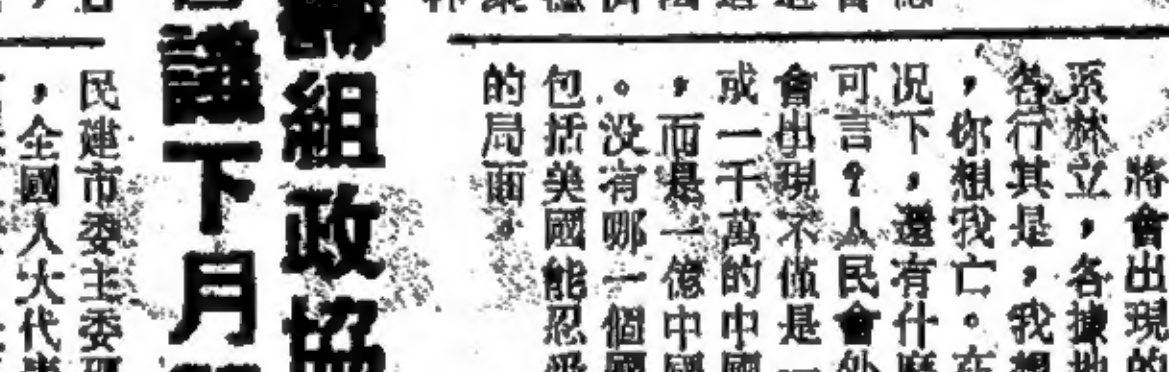 將會出現的
系林立，各據地
各行其是，我想
，你想我亡。在
况下，還有什麼
可言？人民會外
會出現不僅是一
或一千萬的中國
，而是一億中國
。没有哪一個國
包括美國能忍受
的局面。
組政協
議下月
民建市委主委
，全國人大代表